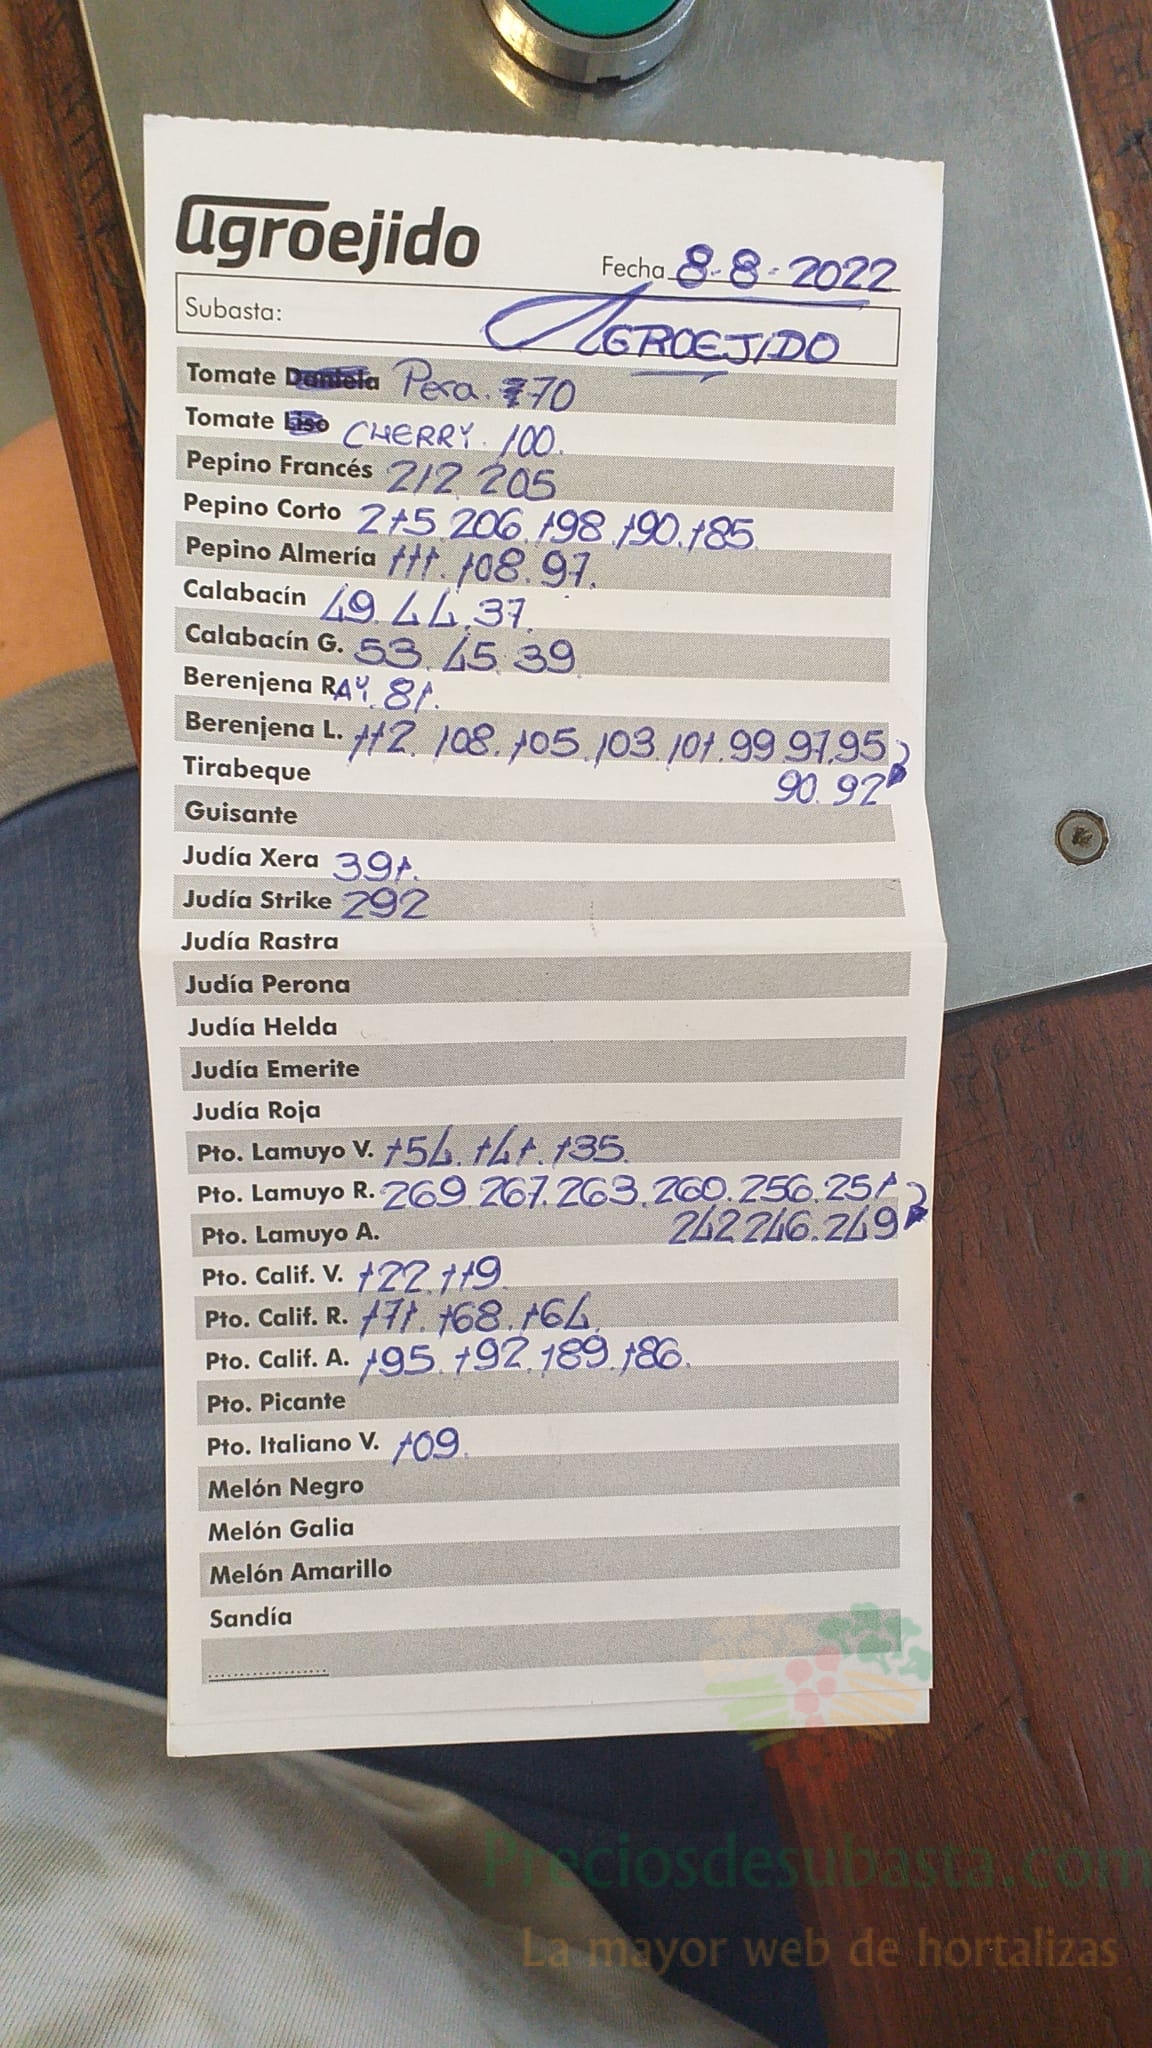 agroejido
Fecha 8-8-2022
Subasta: AGROEJIDO
Tomate Daniela Pera. 70
Tomate Liso CHERRY. 100.
Pepino Francés 212 205
Pepino Corto 215. 206. 198. 190. 185.
Pepino Almería 111. 108. 97.
Calabacín 49. 44. 37.
Calabacín G. 53. 45. 39
Berenjena RAY. 81.
Berenjena L. 112. 108. 105. 103. 101. 99 97. 95
Tirabeque 90. 92
Guisante
Judía Xera 391.
Judía Strike 292
Judía Rastra
Judía Perona
Judía Helda
Judía Emerite
Judía Roja
Pto. Lamuyo V. 154. 141. 135.
Pto. Lamuyo R. 269. 267. 263. 260. 256. 251
Pto. Lamuyo A. 242 246. 249
Pto. Calif. V. 122. 119.
Pto. Calif. R. 171. 168. 164.
Pto. Calif. A. 195. 192. 189. 186.
Pto. Picante
Pto. Italiano V. 109.
Melón Negro
Melón Galia
Melón Amarillo
Sandía
Preciosdesubasta.com
La mayor web de hortalizas